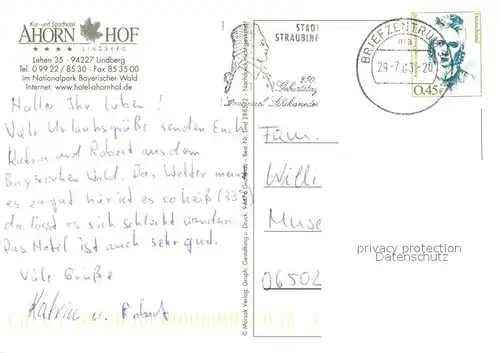 Kur- und Sporthotel
AHORN HOF
LINDBERG
Lehen 35 - 94227 Lindberg
Tel. 0 99 22 / 85 30 - Fax 85 35 00
im Nationalpark Bayerischer Wald
Internet: www.hotel-ahornhof.de
Hallo Ihr Lieben!
Viele Urlaubsgrüße senden Euch
Katrin und Robert aus dem
Bayrischen Wald. Das Wetter meint
es zu gut hier ist es so heiß (33°)
da lässt es sich schlecht wandern
Das Hotel ist auch sehr gut.
Viele Grüße
Katrin u. Robert
STADT
STRAUBING
250
Geburtstag
Emanuel Schikaneder
BRIEFZENTRUM
Deutschland
0,45€
Fam.
Willi
Muse
06502
privacy protection
Datenschutz